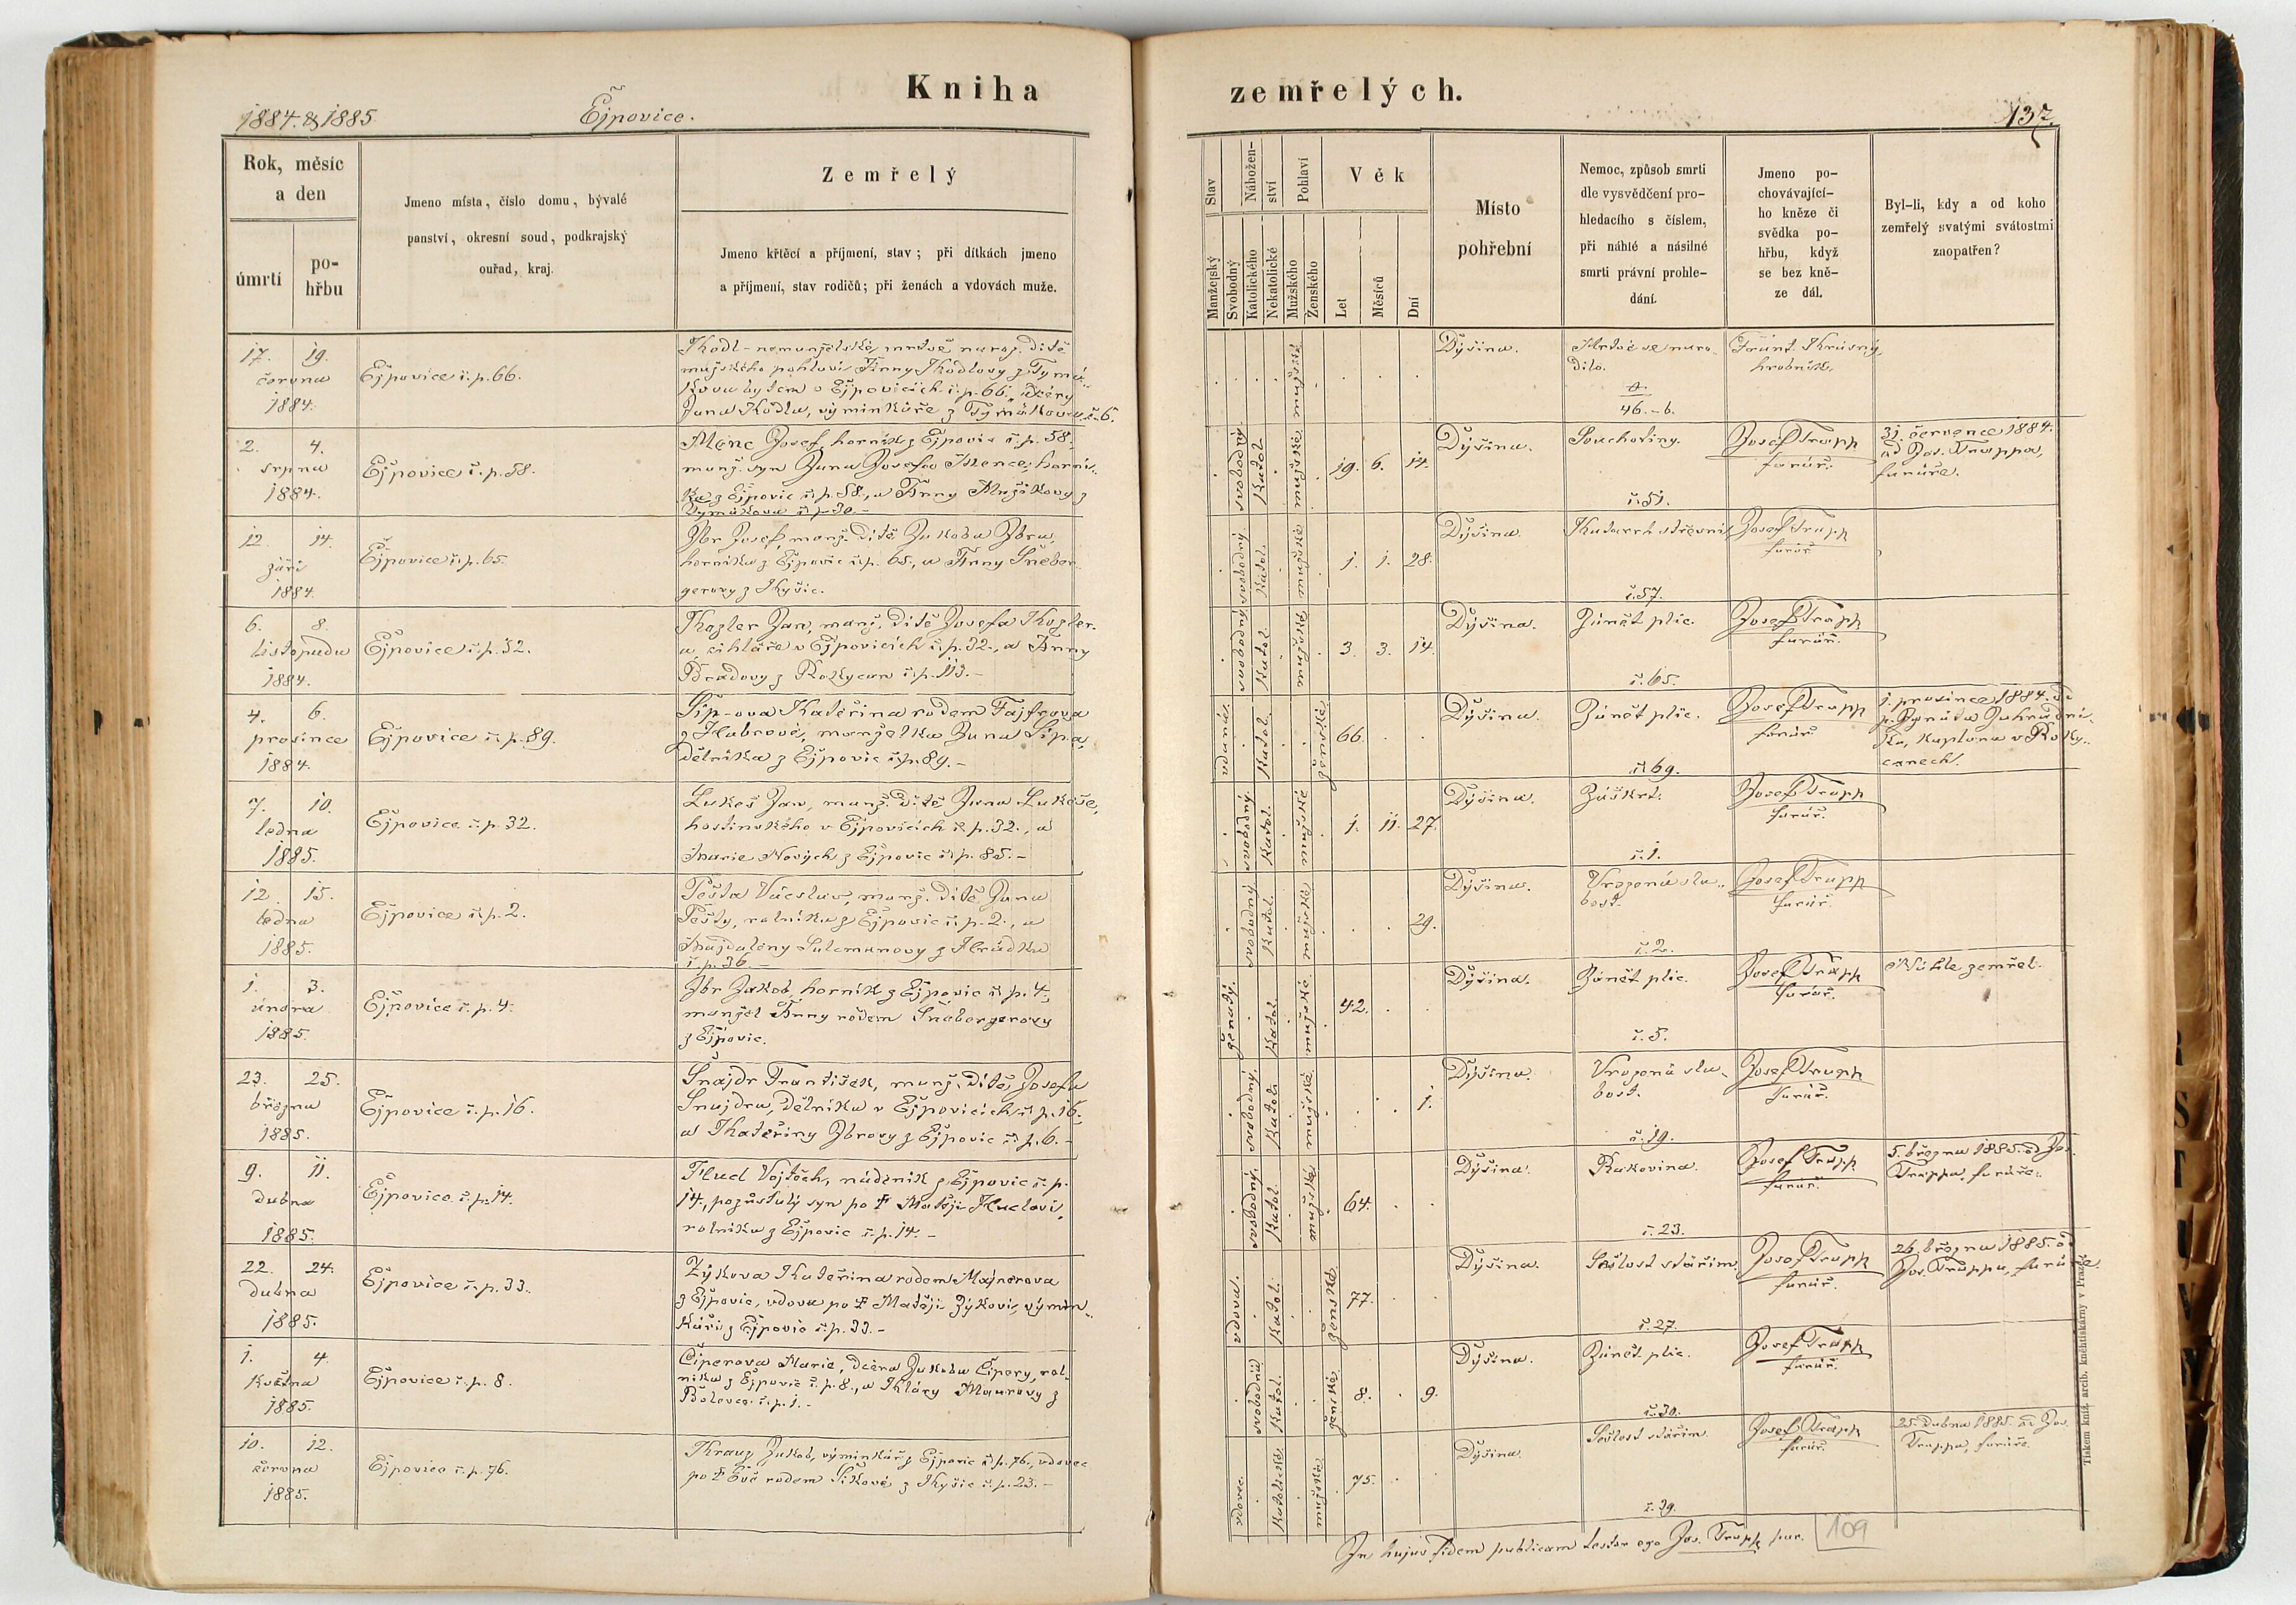 Kniha
zemřelých.
1884. & 1885
Ejpovice.
137.
Rok, měsíc
a den
úmrtí
po-
hřbu
Jmeno místa, číslo domu, bývalé
panství, okresní soud, podkrajský
ouřad, kraj.
Zemřelý
Jmeno křtěcí a příjmení, stav; při dítkách jmeno
a příjmení, stav rodičů; při ženách a vdovách muže.
Stav
Manželský
Svobodný
Nábožen-
ství
Katolického
Nekatolické
Pohlaví
Mužského
Ženského
Věk
Let
Měsíců
Dní
Místo
pohřební
Nemoc, způsob smrti
dle vysvědčení pro-
hledacího s číslem,
při náhlé a násilné
smrti právní prohle-
dání.
Jmeno po-
chovávající-
ho kněze či
svědka po-
hřbu, když
se bez kně-
ze dál.
Byl-li, kdy a od koho
zemřelý svatými svátostmi
zaopatřen?
17. 19.
června
1884.
Ejpovice č. p. 66.
Ködl - nemanželské, mrtvě naroz. dítě
mužského pohlaví Anny Ködlovy z Tymá-
kova bytem v Ejpovicích č. p. 66., dcery
Jana Ködla, výminkáře z Tymákova č. 6.
mužské
Dýšina.
Mrtvé se naro-
dilo.
46. - b.
Frant. Krásný,
hrobník.
2. 4.
srpna
1884.
Ejpovice č. p. 58.
Menc Josef, horník z Ejpovic č. p. 58.,
manž. syn Jana Josefa Mence, horní-
ka z Ejpovic č. p. 58., a Anny Mužíkovy z
Tymákova č. p. 30. -
svobodný. Katol. mužské 19. 6. 14.
Dýšina.
Souchotiny.
č. 51.
Josef Trapp
farář.
31. července 1884.
od Jos. Trappa,
faráře.
12. 14.
září
1884.
Ejpovice č. p. 65.
Zbr Josef, manž. dítě Jakoba Zbra,
horníka z Ejpovic č. p. 65., a Anny Šneber-
gerovy z Kyšic.
svobodný. Katol. mužské 1. 1. 28.
Dýšina.
Katarrh střevní.
č. 57.
Josef Trapp
farář.
6. 8.
listopadu
1884.
Ejpovice č. p. 32.
Kogler Jan, manž. dítě Josefa Kogler-
a, cihláře v Ejpovicích č. p. 32., a Anny
z Rokycan č. p. 113. -
svobodný Katol. mužské 3. 3. 14.
Dýšina.
Zánět plic.
č. 65.
Josef Trapp
farář.
4. 6.
prosince
1884.
Ejpovice č. p. 89.
Šíp-ova Kateřina rodem Fajfrova
z Habrové, manželka Jana Šípa,
dělníka z Ejpovic č. p. 89. -
vdaná. Katol. ženské 66.
Dýšina.
Zánět plic.
č. 69.
Josef Trapp
farář
1. prosince 1884. od
p. Ignáta Zahradní-
ka, kaplana v Roky-
canech.
7. 10.
ledna
1885.
Ejpovice č. p. 32.
Lukeš Jan, manž. dítě Jana Lukeše,
hostinského v Ejpovicích č. p. 32., a
Marie Nových z Ejpovic č. p. 85. -
svobodný. Katol. mužské 1. 11. 27.
Dýšina.
Záškrt.
č. 1.
Josef Trapp
farář.
12. 15.
ledna
1885.
Ejpovice č. p. 2.
Pešta Václav, manž. dítě Jana
Pešty, rolníka z Ejpovic č. p. 2., a
Majdaleny Salcmanovy z Hrádku
č. p. 36. -
svobodný Katol. mužské 29.
Dýšina.
Vrozená sla-
bost.
č. 2.
Josef Trapp
farář.
1. 3.
února
1885.
Ejpovice č. p. 4.
Zbr Jakob, horník z Ejpovic č. p. 4.,
manžel Anny rodem Šnebergerovy
z Ejpovic.
ženatý. Katol. mužské. 42.
Dýšina.
Zánět plic.
č. 5.
Josef Trapp
farář.
Náhle zemřel.
23. 25.
března
1885.
Ejpovice č. p. 16.
Šnajdr František, manž. dítě, Josefa
Šnajdra, dělníka v Ejpovicích č. p. 16.,
a Kateřiny Zbrovy z Ejpovic č. p. 6. -
svobodný. Katol. mužské. 1.
Dýšina.
Vrozená sla-
bost.
č. 19.
Josef Trapp
farář.
9. 11.
dubna
1885.
Ejpovice č. p. 14.
Hucl Vojtěch, nádeník z Ejpovic č. p.
14., pozůstalý syn po † Matěji Huclovi,
rolníku z Ejpovic č. p. 14. -
svobodný. Katol. mužské 64.
Dýšina.
Rakovina.
č. 23.
Josef Trapp
farář.
5. března 1885. od Jos.
Trappa, faráře.
22. 24.
dubna
1885.
Ejpovice č. p. 33.
Zýkova Kateřina rodem Majnerova
z Ejpovic, vdova po † Matěji Zýkovi, výmin-
káři z Ejpovic č. p. 33. -
vdova. Katol. ženské 77.
Dýšina.
Sešlost stářím.
č. 27.
Josef Trapp
farář.
26. března 1885. od
Jos. Trappa, faráře.
1. 4.
května
1885.
Ejpovice č. p. 8.
Čiperova Marie, dcera Jakoba Čipery, rol-
níka z Ejpovic č. p. 8., a Kláry Maurovy z
Bolevce č. p. 1. -
svobodná Katol. ženské 8. 9.
Dýšina.
Zánět plic.
č. 30.
Josef Trapp
farář.
10. 12.
června
1885.
Ejpovice č. p. 76.
Krauz Jakob, výminkář z Ejpovic č. p. 76., vdovec
po † Evě rodem Šikové z Kyšic č. p. 23. -
vdovec. Katolické. mužské. 75.
Dýšina.
Sešlost stářím.
č. 39.
Josef Trapp
farář.
25. dubna 1885. od Jos.
Trappa, faráře.
In hujus fidem publicam testor ego Jos. Trapp par.
109
Tiskem kníž. arcib. knihtiskárny v Praze.